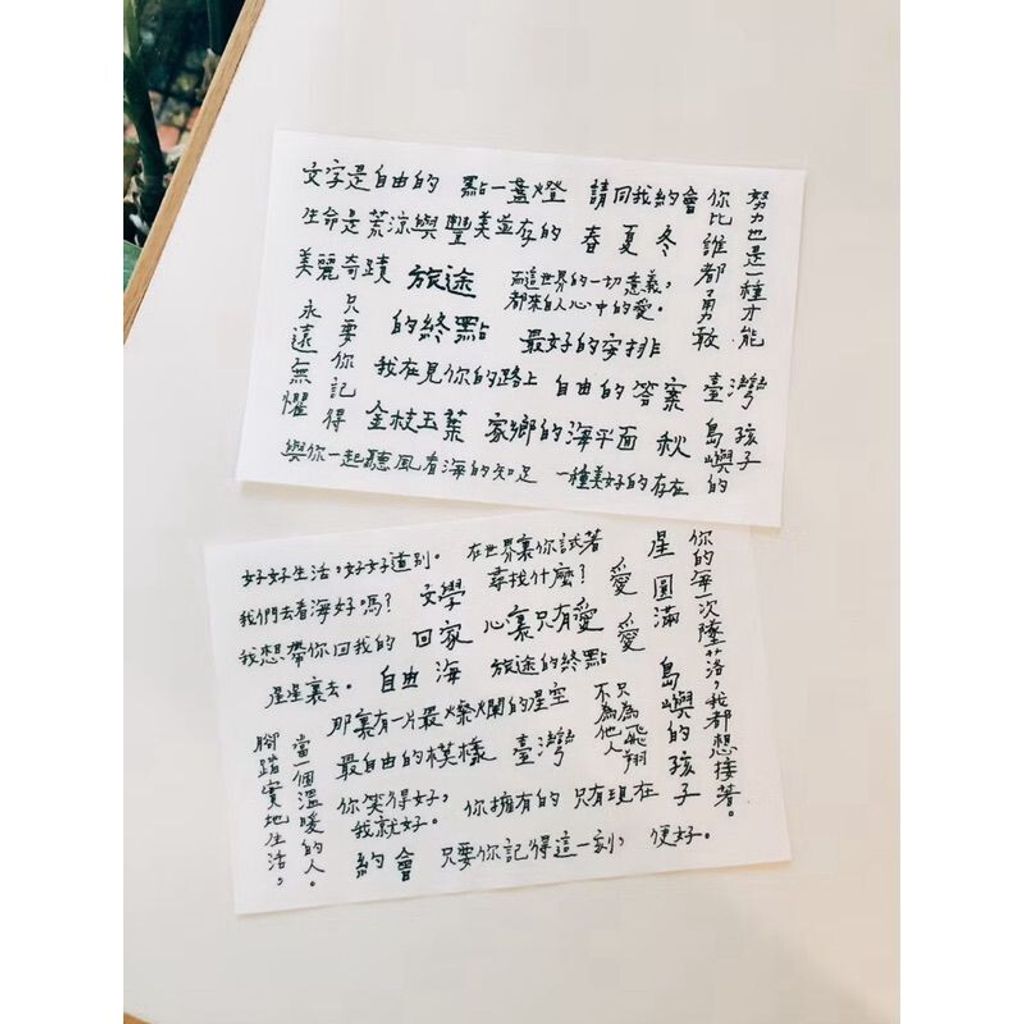 文字是自由的 點一盞燈 請同我約會
生命是荒涼與豐美並存的 春 夏 冬
美麗奇蹟 旅途
而這世界的一切意義,
都來自人心中的愛。
的終點 最好的安排
我在見你的路上 自由的答案 臺灣
金枝玉葉 家鄉的海平面 秋
與你一起聽風看海的知足 一種美好的存在
努力也是一種才能
你比誰都勇敢
只要你記得
永遠無懼
孩子
島嶼的
好好生活,好好道別。 在世界裏你試著
尋找什麼?
我們去看海好嗎? 文學
我想帶你回我的 回家 心裏只有愛
星星裏去。 自由 海 旅途的終點
那裏有一片最燦爛的星空
最自由的模樣 臺灣
你笑得好,
我就好。
你擁有的 只有現在
約會 只要你記得這一刻, 便好。
你的每一次墜落,我都想接著。
星 圓滿
島嶼的孩子
愛 愛
只為飛翔
不為他人
當一個溫暖的人。
腳踏實地生活。